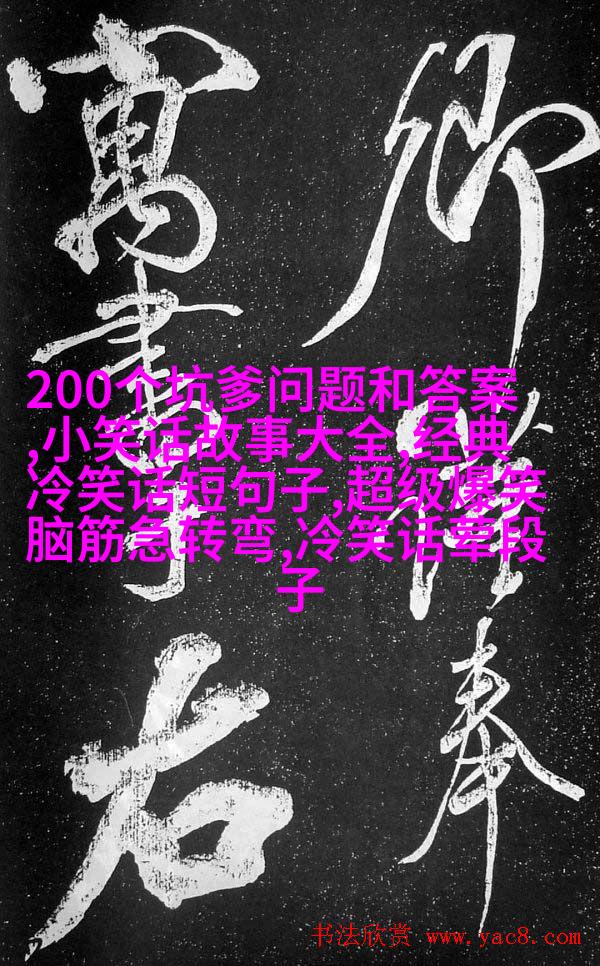 卿謹奉
寓書于右
200个坑爹问题和答案
,小笑话故事大全,经典
冷笑话短句子,超级爆笑
脑筋急转弯,冷笑话荤段
子
书法欣赏 www.yac8.com